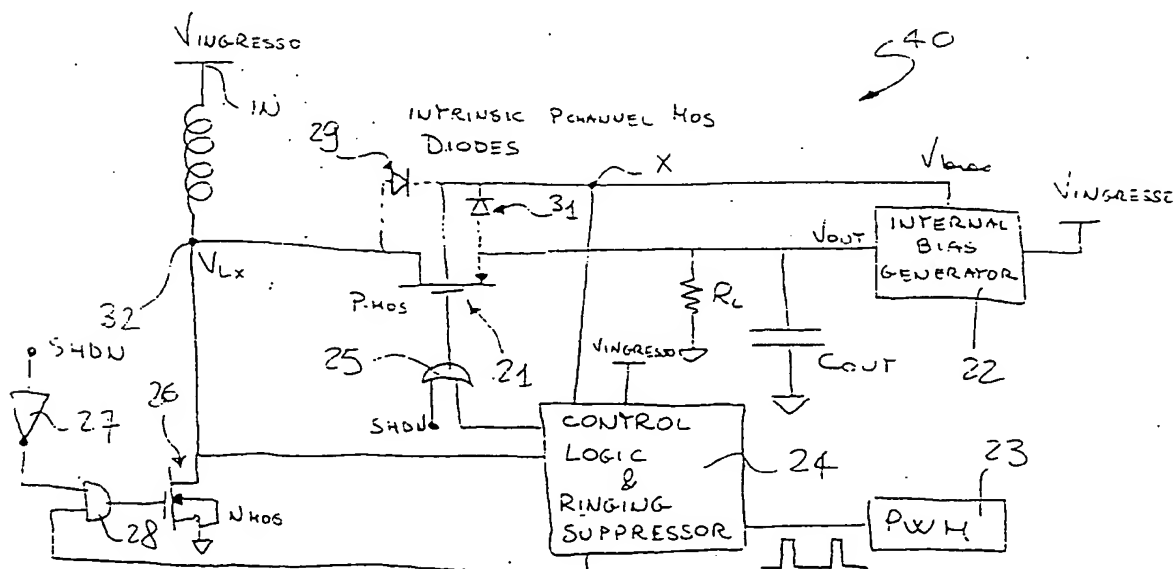 VINGRESSO
40
IN
INTRINSIC PCHANNEL MOS
DIODES
29
X
VINGRESSE
31
VOUT
INTERNAL
BIAS
GENERATOR
VLX
P-MOS
RL
32
SHDN
25
21
VINGRESSO
COUT
22
27
26
SHDN
CONTROL
LOGIC
&
RINGING
SUPPRESSOR
24
23
PWM
28
NMOS